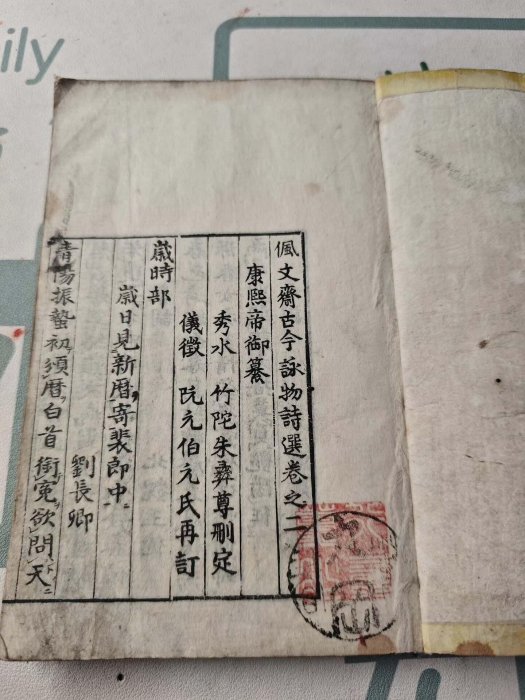 佩文齋古今詠物詩選卷之二
康熙帝御纂
秀水 竹陀朱彝尊刪定
儀徵 阮元伯元氏再訂
歲時部
歲日見新曆寄裴郎中
劉長卿
青陽振蟄初頒曆白首銜冤欲問天
ily